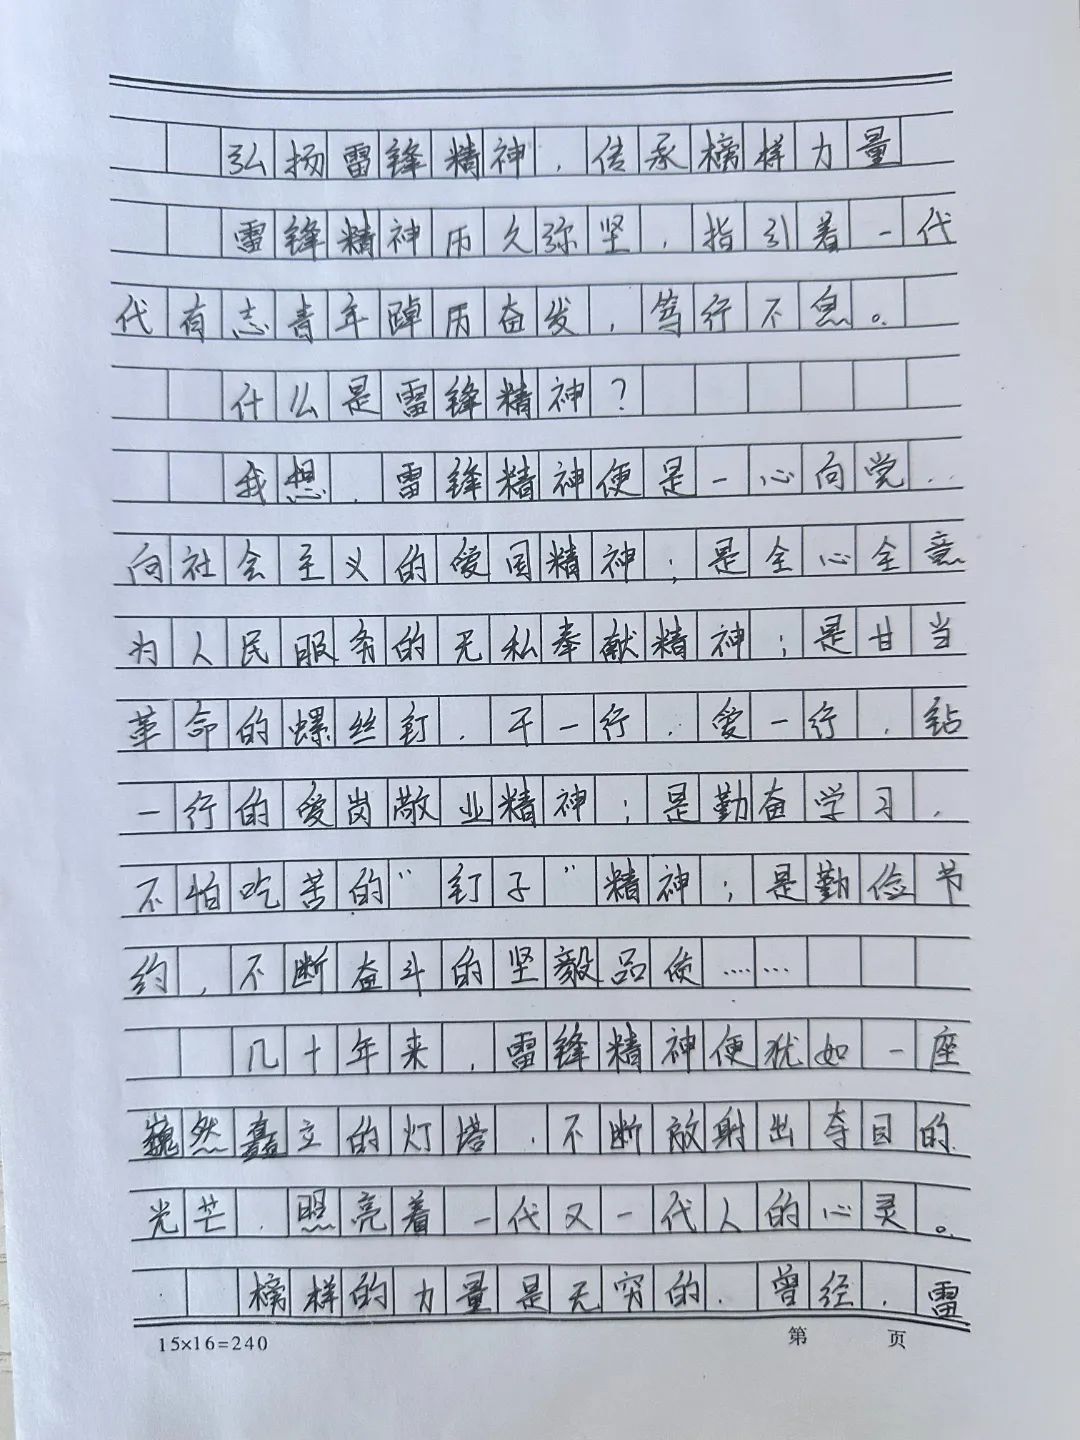 弘扬雷锋精神，传承榜样力量
雷锋精神历久弥坚，指引着一代
代有志青年踔厉奋发，笃行不息。
什么是雷锋精神？
我想，雷锋精神便是一心向党，
向社会主义的爱国精神；是全心全意
为人民服务的无私奉献精神；是甘当
革命的螺丝钉，干一行，爱一行，钻
一行的爱岗敬业精神；是勤奋学习，
不怕吃苦的“钉子”精神；是勤俭节
约，不断奋斗的坚毅品质……
几十年来，雷锋精神便犹如一座
巍然矗立的灯塔，不断放射出夺目的
光芒，照亮着一代又一代人的心灵。
榜样的力量是无穷的，曾经，雷
15×16=240
第 页